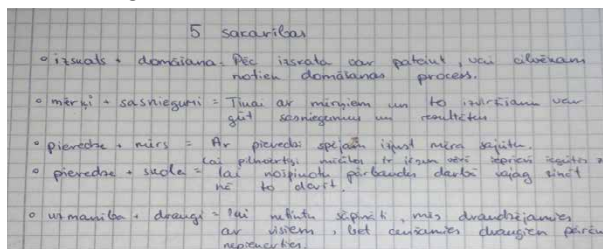 5 sakarības
izskats + domāšana = Pēc izskata var pateikt, vai cilvēkam
notiek domāšanas process.
mērķi + sasniegumi = Tikai ar mērķiem un to izvirzīšanu var
gūt sasniegumus un rezultātus
pieredze + mūrs = Ar pieredzi spējam izjust mūra sajūtu.
lai pilnvērtīgi mācītos ir jāņem vērā iepriekš
pieredze + skola = lai nopietnu pārbaudes darbā vajag zināt
to darīt.
uzmanība + draugi = lai nebūtu sāpināti, mēs draudzējamies
ar visiem, bet cenšamies draugiem
nepieķerties.